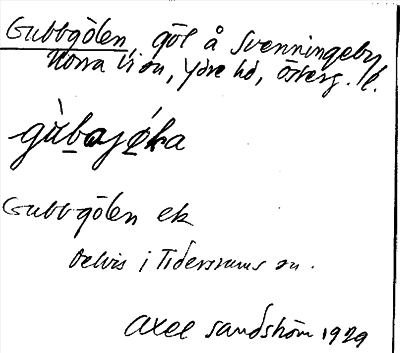 Gubbgölen, göl å Svenningeby,
Norra Vi sn, Ydre hd, Österg. l.
gùbajóka
Gubbgölen ek
delvis i Tidersrums sn.
Axel Sandström 1929